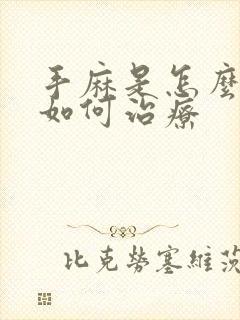 手麻是怎麼
如何治療
比克勞塞維茨